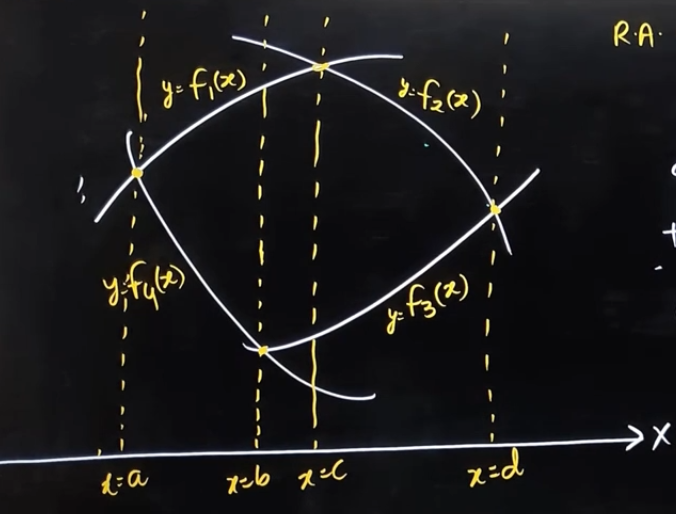 R.A.
y=f₁(x)
y=f₂(x)
y=f₄(x)
y=f₃(x)
X
x=a
x=b
x=c
x=d